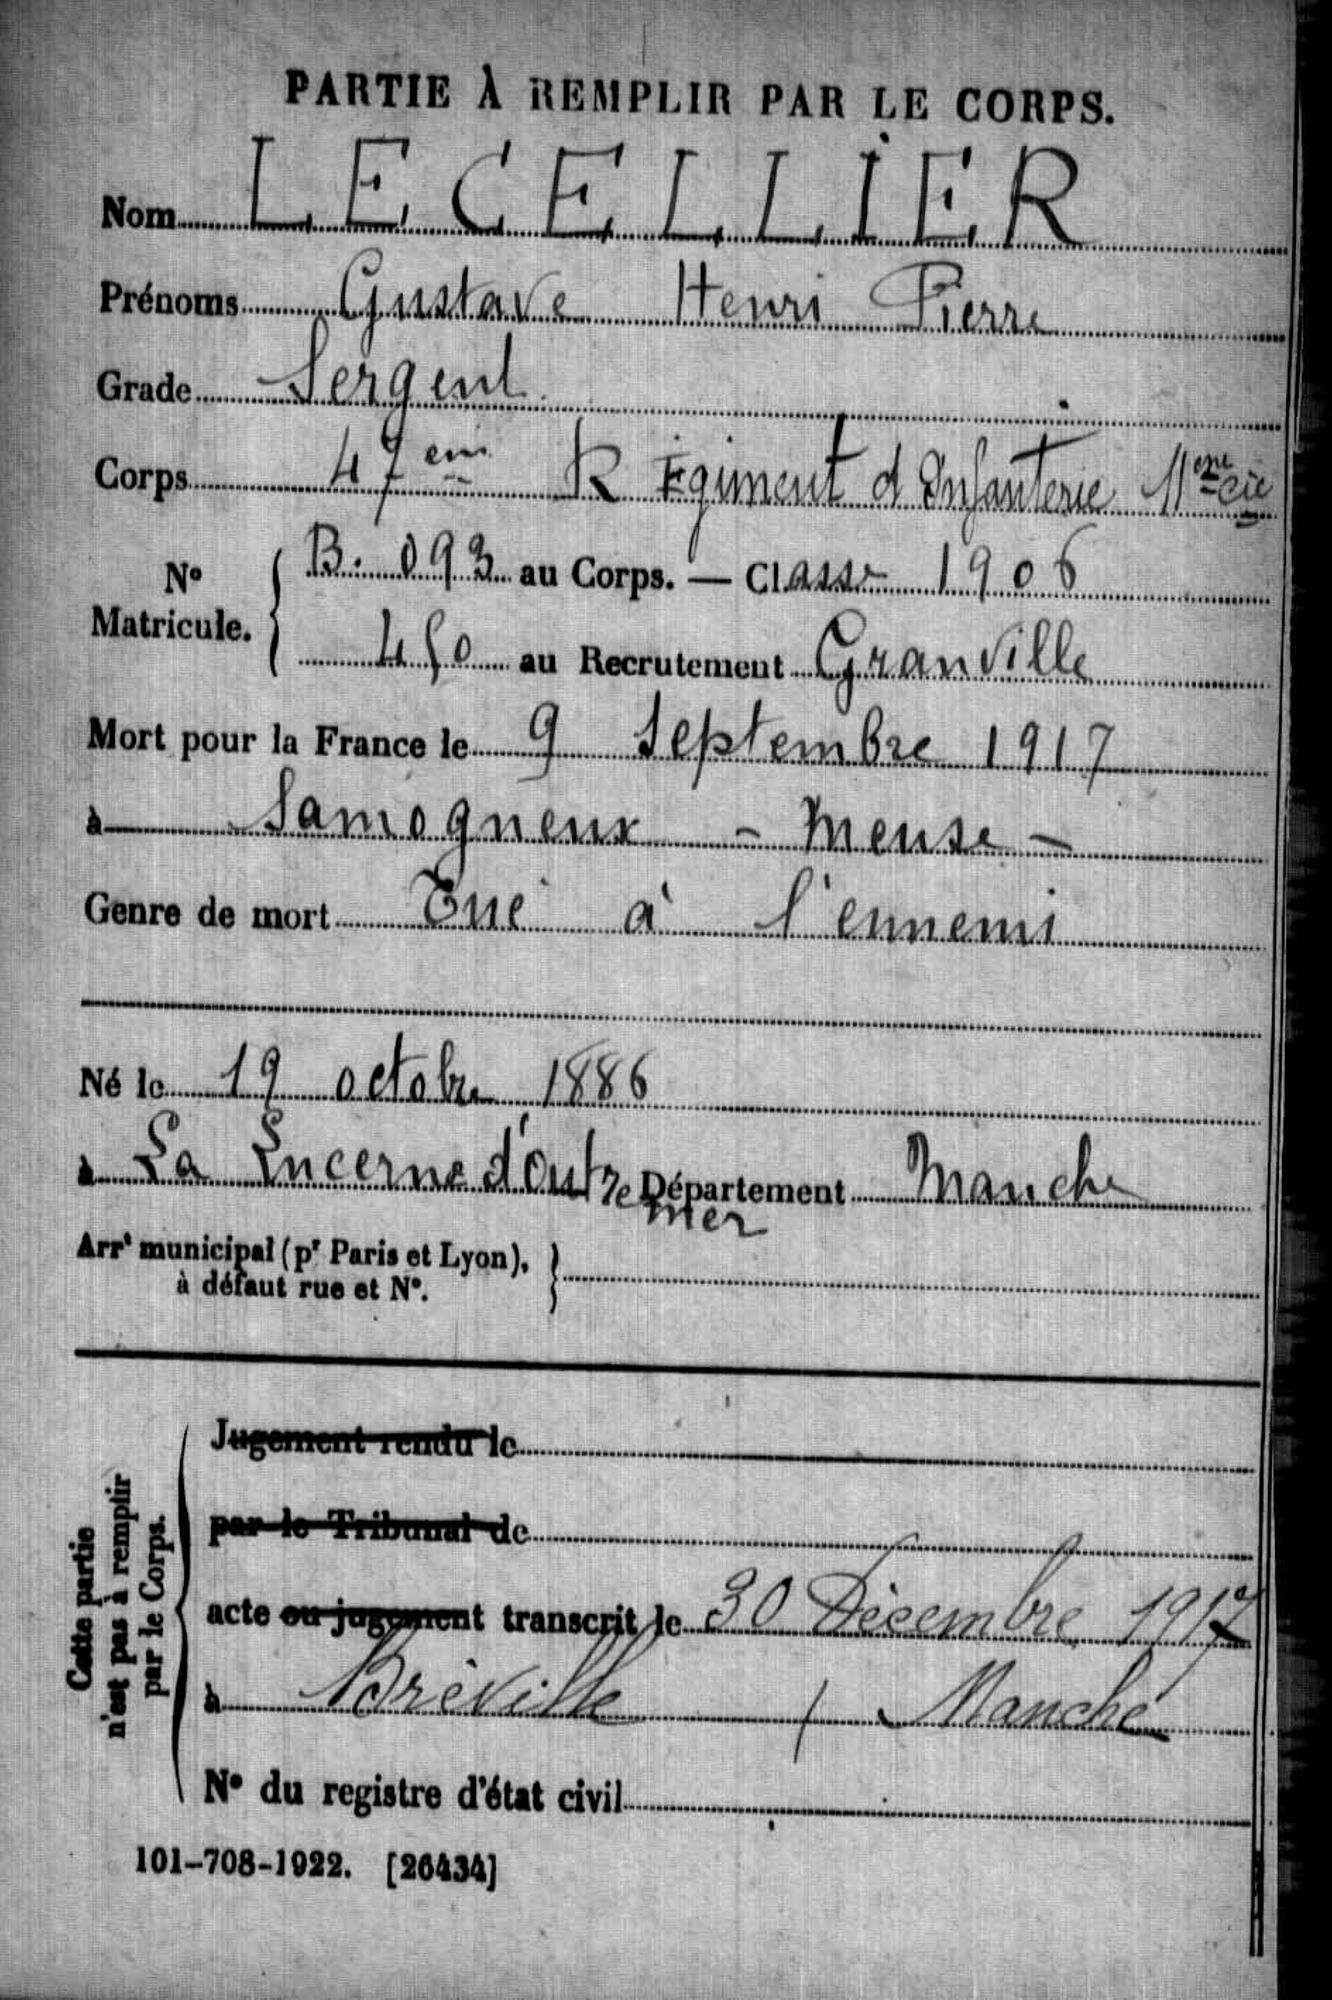 PARTIE À REMPLIR PAR LE CORPS.
Nom LECELLIER
Prénoms Gustave Henri Pierre
Grade Sergent
Corps 47eme Régiment d'Infanterie 11eme Cie
No Matricule. B. 093 au Corps. — Classe 1906
450 au Recrutement Granville
Mort pour la France le 9 Septembre 1917
à Samogneux - Meuse -
Genre de mort Tué à l'ennemi
Né le 19 octobre 1886
à La Lucerne d'Outremer Département Manche
Arrt municipal (pr Paris et Lyon),
à défaut rue et No.
Cette partie
n'est pas à remplir
par le Corps.
Jugement rendu le
par le Tribunal de
acte ou jugement transcrit le 30 Décembre 1917
à Bréville / Manche
No du registre d'état civil
101-708-1922. [26434]